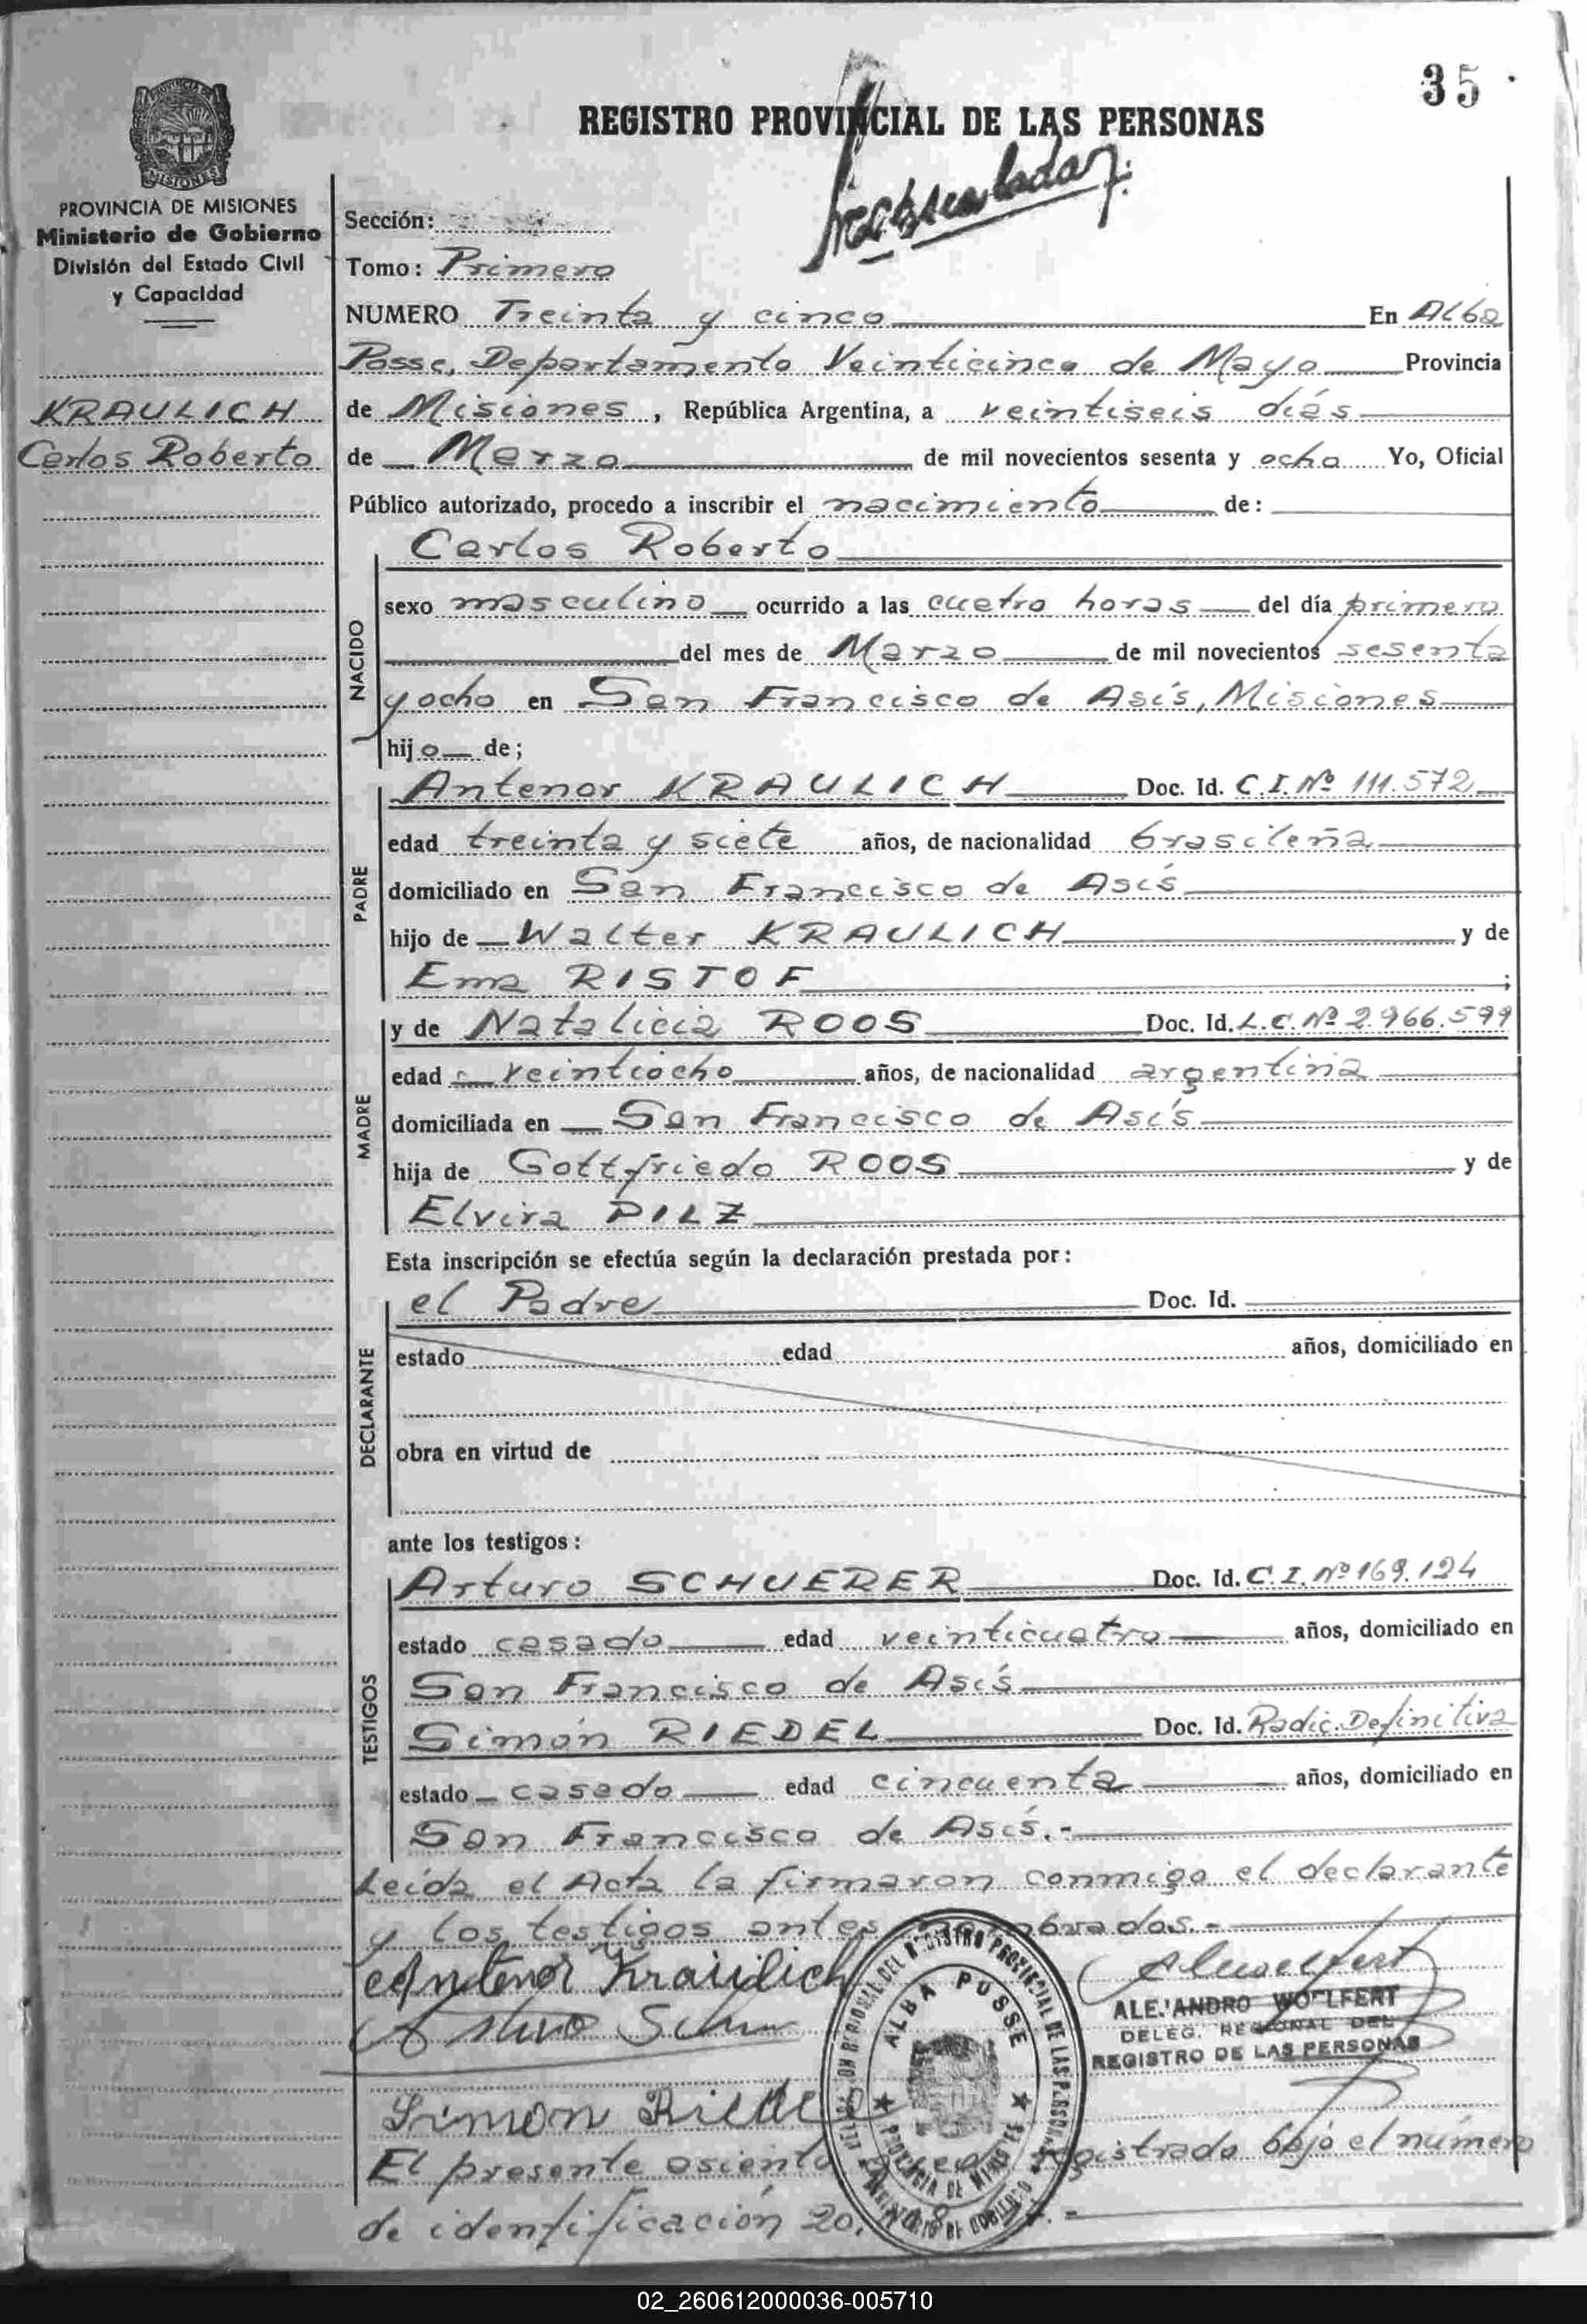 35
REGISTRO PROVINCIAL DE LAS PERSONAS
MISIONES
PROVINCIA DE MISIONES
Ministerio de Gobierno
División del Estado Civil
y Capacidad
KRAULICH
Carlos Roberto
Sección:
Tomo: Primero
NUMERO Treinta y cinco En Alba
Posse, Departamento Veinticinco de Mayo Provincia
de Misiones, República Argentina, a veintiseis días
de Marzo de mil novecientos sesenta y ocho Yo, Oficial
Público autorizado, procedo a inscribir el nacimiento de:
Carlos Roberto
NACIDO
sexo masculino ocurrido a las cuatro horas del día primero
del mes de Marzo de mil novecientos sesenta
y ocho en San Francisco de Asís, Misiones
hijo de;
PADRE
Antenor KRAULICH Doc. Id. C.I. Nº 111.572
edad treinta y siete años, de nacionalidad brasileña
domiciliado en San Francisco de Asís
hijo de Walter KRAULICH y de
Ema RISTOF ;
MADRE
y de Natalicia ROOS Doc. Id. L.C. Nº 2.966.599
edad veintiocho años, de nacionalidad argentina
domiciliada en San Francisco de Asís
hija de Gottfriedo ROOS y de
Elvira PILZ
Esta inscripción se efectúa según la declaración prestada por:
DECLARANTE
el Padre Doc. Id.
estado edad años, domiciliado en
obra en virtud de
ante los testigos:
TESTIGOS
Arturo SCHUERER Doc. Id. C.I. Nº 169.124
estado casado edad veinticuatro años, domiciliado en
San Francisco de Asís
Simón RIEDEL Doc. Id. Radic. Definitiva
estado casado edad cincuenta años, domiciliado en
San Francisco de Asís.-
Leída el Acta la firmaron conmigo el declarante
y los testigos antes
Antenor Kraulich
Arturo
Simon
ALEJANDRO WOLFERT
DELEG. REGIONAL DEL
REGISTRO DE LAS PERSONAS
DEL REGISTRO PROVINCIAL DE LAS PERSONAS
ALBA POSSE
PROVINCIA DE MISIONES
MINISTERIO DE GOBIERNO
El presente asiento registrado bajo el número
de identificación 20.
02_260612000036-005710